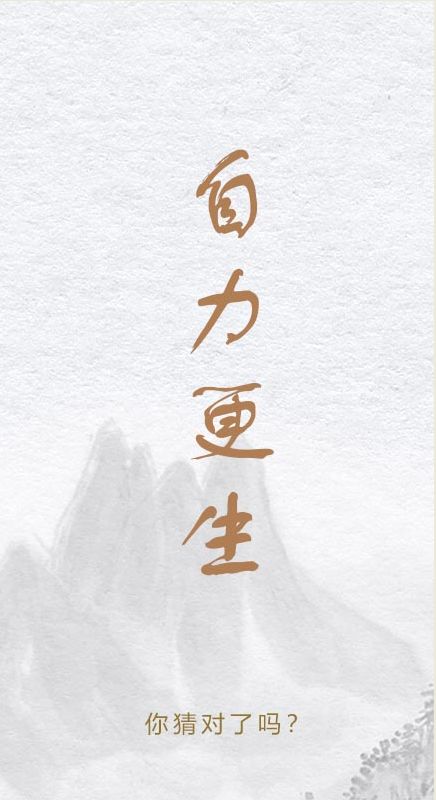 自力更生
你猜对了吗？